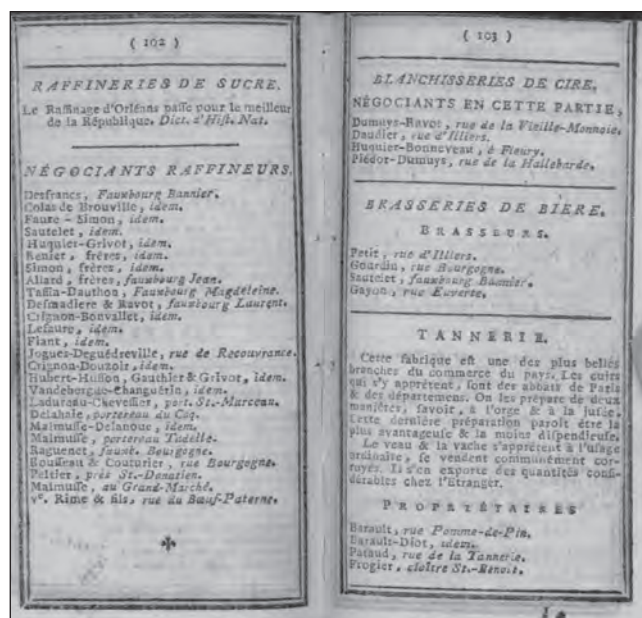 ( 102 )
RAFFINERIES DE SUCRE.
Le Raffinage d'Orléans passe pour le meilleur
de la République. Dict. d'Hist. Nat.
NÉGOCIANTS RAFFINEURS.
Desfrancs, Fauxbourg Bannier.
Colas de Brouville, idem.
Faure-Simon, idem.
Sautelet, idem.
Huquier-Grivot, idem.
Renier, frères, idem.
Simon, frères, idem.
Allard, frères, fauxbourg Jean.
Tassin-Dauthon, Fauxbourg Magdeleine.
Desmadiere & Ravot, fauxbourg Laurent.
Crignon-Bonvallet, idem.
Lefaure, idem.
Fiant, idem.
Jogues-Deguédreville, rue de Recouvrance.
Crignon-Douzoir, idem.
Hubert-Husson, Gauthier & Grivot, idem.
Vandebergue-Changuérin, idem.
Ladureau-Chevessier, port. St.-Marceau.
Delahaie, portereau du Coq.
Malmusse-Delanoue, idem.
Malmusse, portereau Tudelle.
Raguenet, fauxb. Bourgogne.
Rousseau & Couturier, rue Bourgogne.
Peltier, près St.-Donatien.
Malmusse, au Grand-Marché.
Ve. Rime & fils, rue du Bœuf-Paterne.
( 103 )
BLANCHISSERIES DE CIRE.
NÉGOCIANTS EN CETTE PARTIE,
Dumuys-Ravot, rue de la Vieille-Monnoie.
Daudier, rue d'Illiers.
Huquier-Bonneveau, à Fleury.
Plédor-Dumuys, rue de la Hallebarde.
BRASSERIES DE BIERE.
BRASSEURS.
Petit, rue d'Illiers.
Gourdin, rue Bourgogne.
Sautelet, fauxbourg Bannier.
Gayon, rue Euverte.
TANNERIE.
Cette fabrique est une des plus belles
branches du commerce du pays. Les cuirs
qui s'y apprêtent, sont des abbats de Paris
& des départemens. On les prépare de deux
manières, savoir, à l'orge & à la jusée.
Cette dernière préparation paroît être la
plus avantageuse & la moins dispendieuse.
Le veau & la vache s'apprêtent à l'usage
ordinaire, se vendent communément cor-
royés. Il s'en exporte des quantités consi-
dérables chez l'Etranger.
PROPRIÉTAIRES
Barault, rue Pomme-de-Pin.
Barault-Diot, idem.
Paraud, rue de la Tannerie.
Frogier, cloître St.-Benoit.